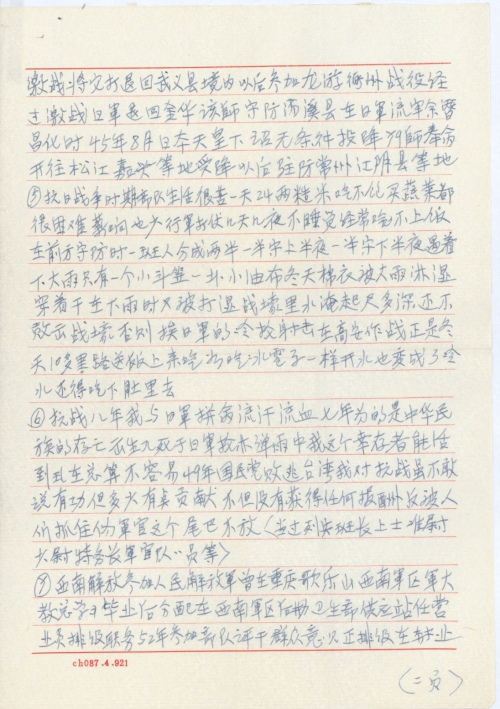 激战将它打退回武义县境内以后参加龙游衢州战役经
过激战日军退回金华该师守防汤溪县在日军流窜余潜
昌化时45年8月日本天皇下诏无条件投降79师奉命
开往松江嘉兴等地受降以后驻防常州江阴县等地
⑤抗日战争时期部队生活很苦一天24两糙米吃不饱买蔬菜都
很困难薪饷也少行军打仗几天几夜不睡觉经常吃不上饭
在前方守防时一班人分成两半一半守上半夜一半守下半夜遇着
下大雨只有一个小斗笠一块小油布冬天棉衣被大雨淋湿
穿着干在下雨时又被打湿战壕里水淹起尺多深还不
敢出战壕否则挨日军的冷枪射击在高安作战正是冬
天10多里路送饭上来吃 吃冰雹子一样开水也变成了冷
水还得吃下肚里去
⑥抗战八年我与日军拼病流汗流血七年为的是中华民
族的存亡死生九死于日军枪林弹雨中我这个幸存者能活
到现在总算不容易49年国民党败逃台湾我对抗战虽不敢
说有功但多少有点贡献不但没有获得任何报酬反被人
们抓住伪军官这个尾巴不放〈当过列兵班长上士准尉
少尉特务长军官队队员等〉
⑦西南解放参加人民解放军曾在重庆歌乐山西南军区军大
教总学习毕业后分配在西南军区后勤卫生部供应站任营
业员排级职务52年参加 评干群众意见正排级在转业
ch087.4.921
(二页)